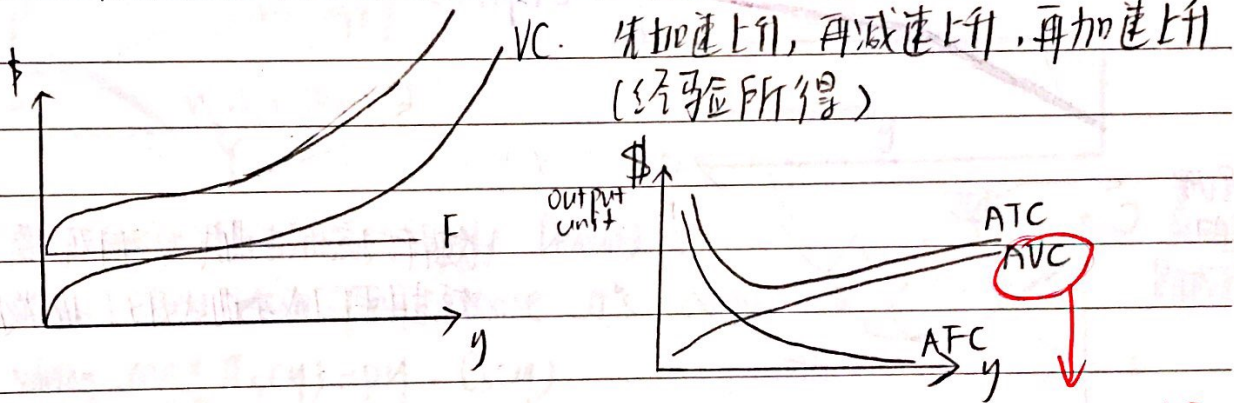 VC. 先加速上升,再减速上升,再加速上升
(经验所得)
$
F
y
$
output
unit
ATC
AVC
AFC
y